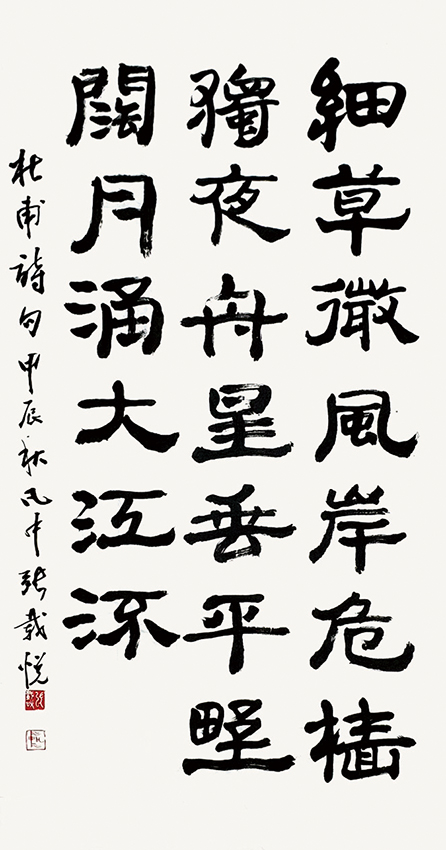 細草微風岸危檣
獨夜舟星垂平野
闊月涌大江流
杜甫詩句甲辰秋 張載悦